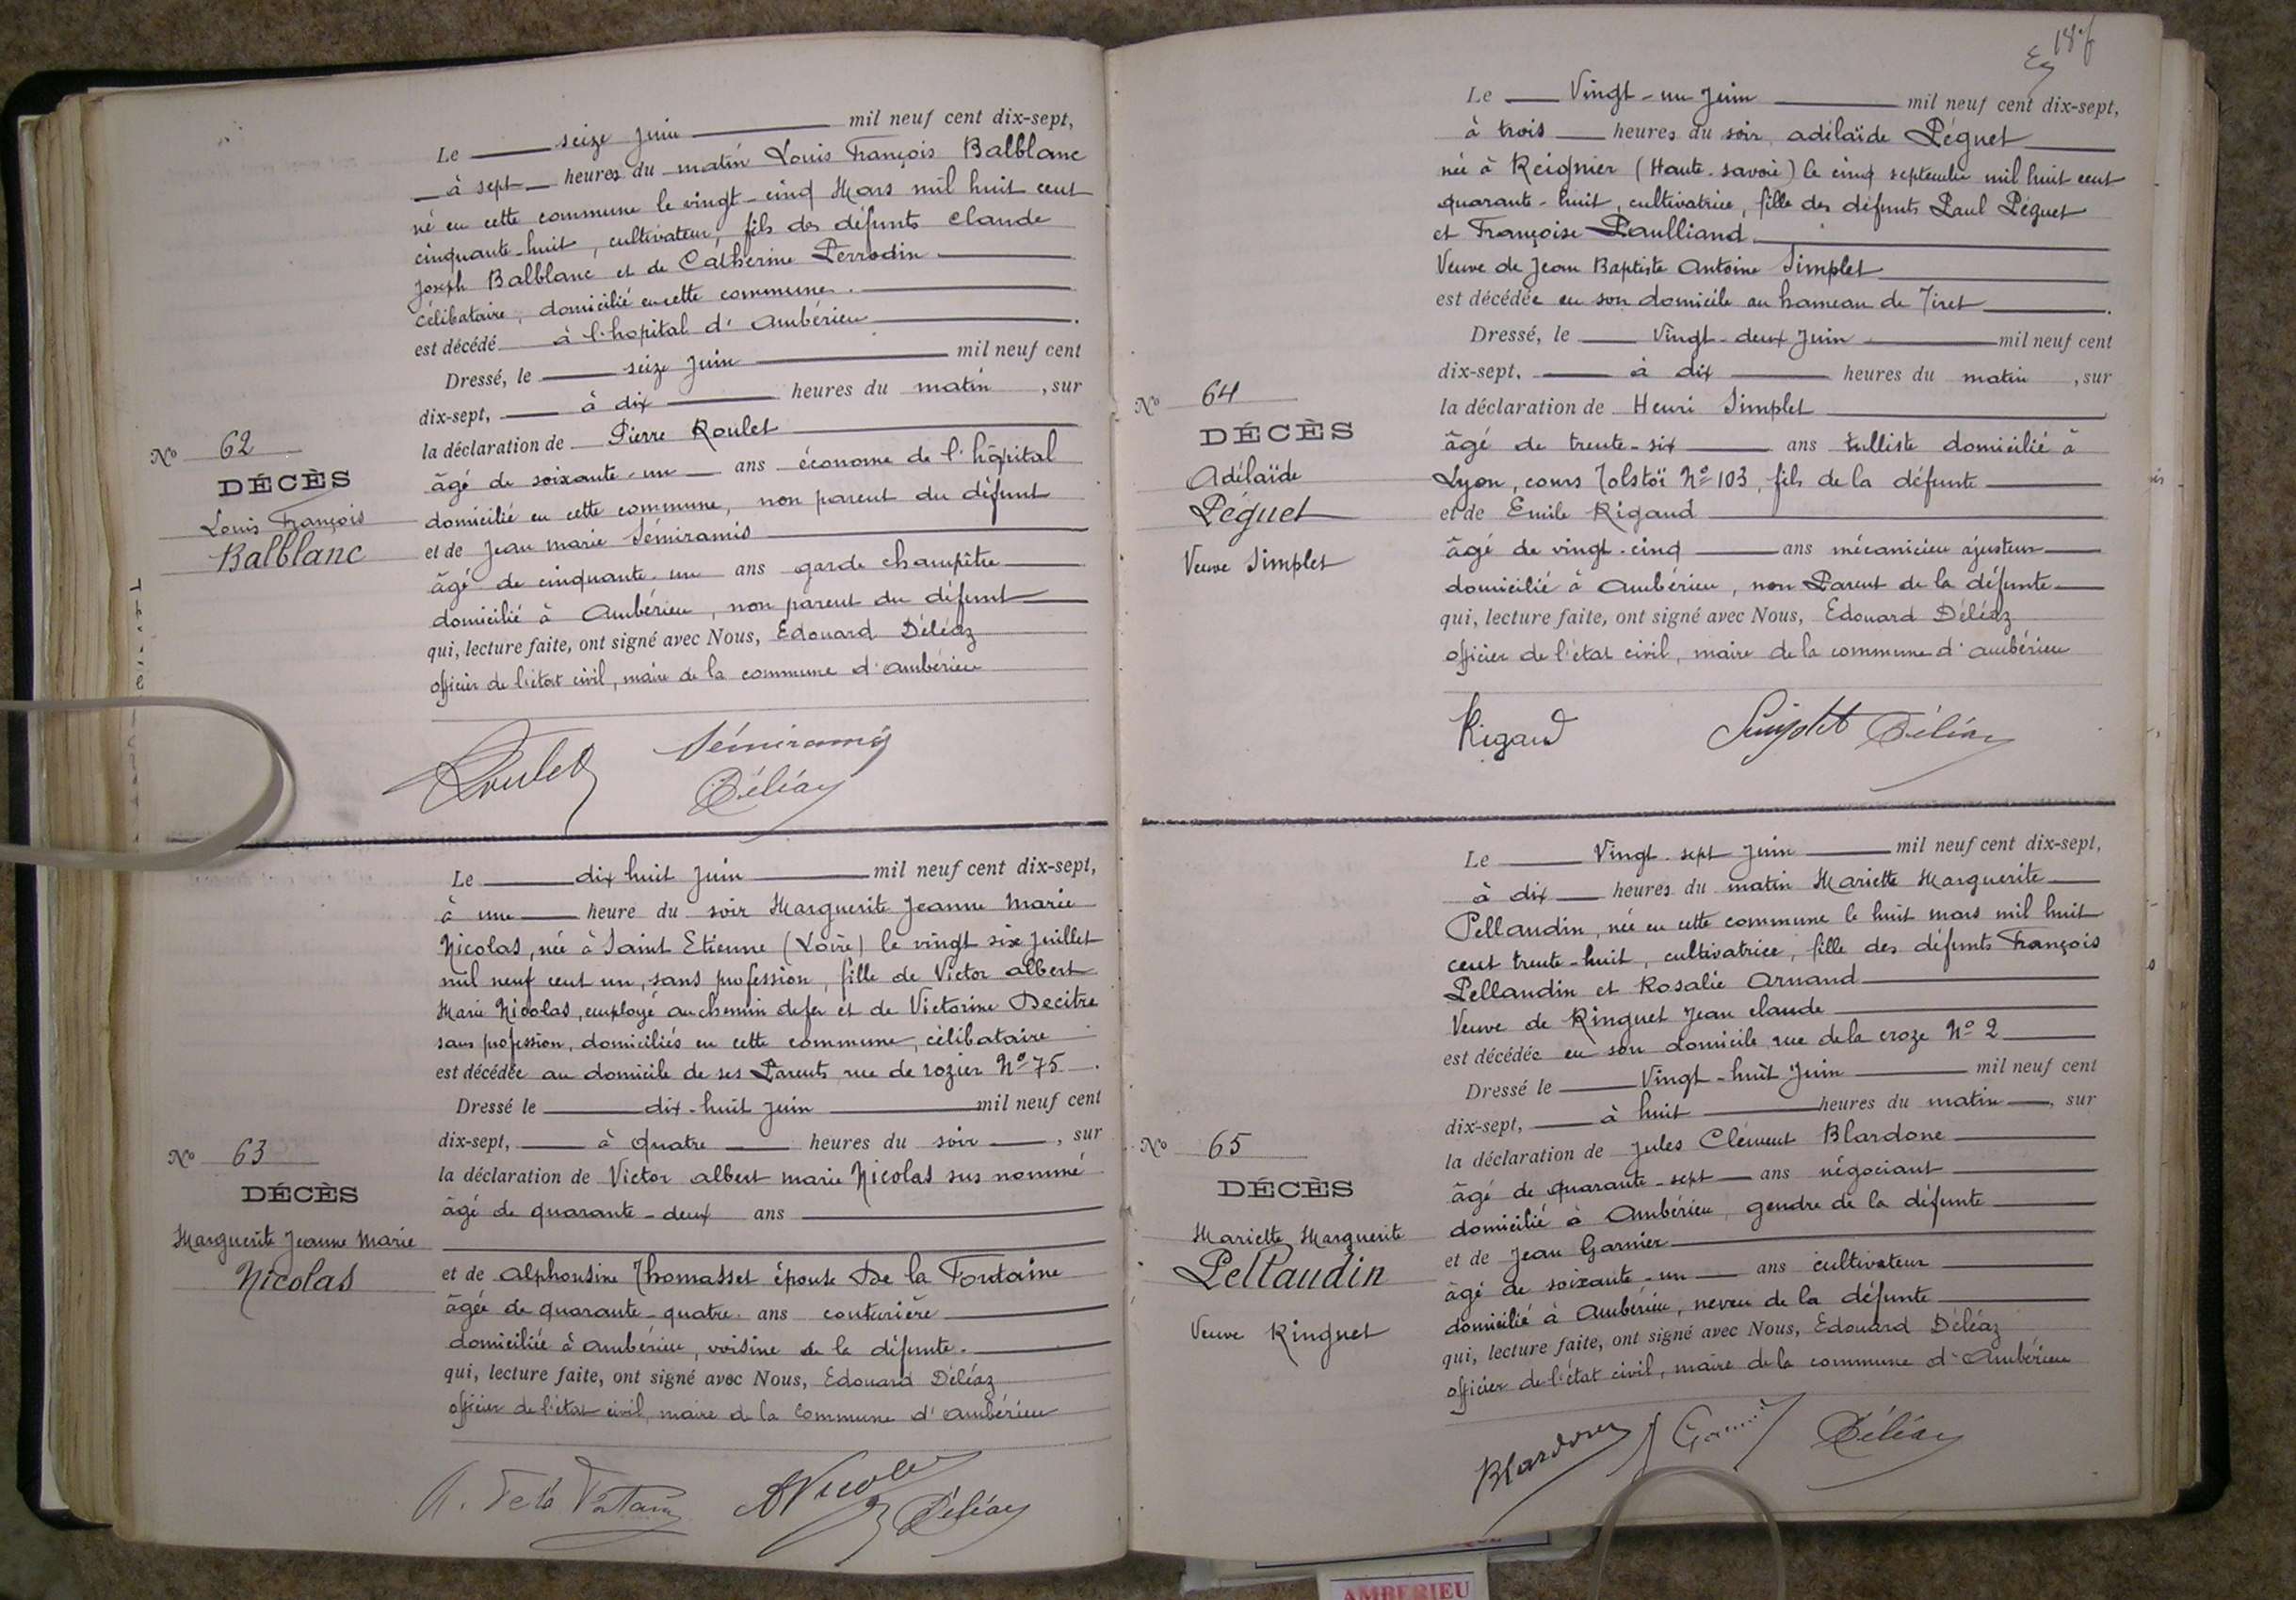 Le seize Juin mil neuf cent dix-sept,
à sept heures du matin Louis François Balblanc
né en cette commune le vingt-cinq Mars mil huit cent
cinquante-huit, cultivateur, fils des défunts Claude
Joseph Balblanc et de Catherine Perrodin
célibataire, domicilié en cette commune.
est décédé à l'hopital d'Ambérieu
Dressé, le seize Juin mil neuf cent
dix-sept, à dix heures du matin, sur
la déclaration de Pierre Roulet
âgé de soixante-un ans économe de l'hôpital
domicilié en cette commune, non parent du défunt
et de Jean Marie Sémiramis
âgé de cinquante-un ans garde champêtre
domicilié à Ambérieu, non parent du défunt
qui, lecture faite, ont signé avec Nous, Edouard Déléaz
officier de l'état civil, maire de la commune d'Ambérieu
Nº 62
DÉCÈS
Louis François
Balblanc
Roulet Sémiramis
Déléaz
Le dix huit Juin mil neuf cent dix-sept,
à une heure du soir Marguerite Jeanne Marie
Nicolas, née à Saint Etienne (Loire) le vingt six Juillet
mil neuf cent un, sans profession, fille de Victor Albert
Marie Nicolas, employé au chemin de fer et de Victorine Decitre
sans profession, domiciliés en cette commune, célibataire
est décédée au domicile de ses Parents rue de rozier Nº 75.
Dressé le dix-huit Juin mil neuf cent
dix-sept, à quatre heures du soir, sur
la déclaration de Victor Albert Marie Nicolas sus nommé
âgé de quarante-deux ans
et de Alphonsine Thomasset épouse De la Fontaine
âgée de quarante-quatre ans couturière
domiciliée à Ambérieu, voisine de la défunte.
qui, lecture faite, ont signé avec Nous, Edouard Déléaz
officier de l'état civil, maire de la Commune d'Ambérieu
Nº 63
DÉCÈS
Marguerite Jeanne Marie
Nicolas
A. De la Fontaine Nicolas Déléaz
Le Vingt-un Juin mil neuf cent dix-sept,
à trois heures du soir, Adélaïde Péguet
née à Reignier (Haute-Savoie) le cinq septembre mil huit cent
quarante-huit, cultivatrice, fille des défunts Paul Péguet
et Françoise Paulliand
Veuve de Jean Baptiste Antoine Simplet
est décédée en son domicile au hameau de Tiret.
Dressé, le Vingt-deux Juin mil neuf cent
dix-sept, à dix heures du matin, sur
la déclaration de Henri Simplet
âgé de trente-six ans tulliste domicilié à
Lyon, cours Tolstoï Nº 103, fils de la défunte
et de Emile Rigaud
âgé de vingt-cinq ans mécanicien ajusteur
domicilié à Ambérieu, non Parent de la défunte
qui, lecture faite, ont signé avec Nous, Edouard Déléaz
officier de l'état civil, maire de la commune d'Ambérieu
Nº 64
DÉCÈS
Adélaïde
Péguet
Veuve Simplet
Rigaud Simplet Déléaz
Le Vingt-sept Juin mil neuf cent dix-sept,
à dix heures du matin Mariette Marguerite
Pellaudin, née en cette commune le huit mars mil huit
cent trente-huit, cultivatrice, fille des défunts François
Pellaudin et Rosalie Arnaud
Veuve de Ringuet Jean Claude
est décédée en son domicile rue de la croze Nº 2
Dressé le Vingt-huit Juin mil neuf cent
dix-sept, à huit heures du matin, sur
la déclaration de Jules Clément Blardone
âgé de quarante-sept ans négociant
domicilié à Ambérieu, gendre de la défunte
et de Jean Garnier
âgé de soixante-un ans cultivateur
domicilié à Ambérieu, neveu de la défunte
qui, lecture faite, ont signé avec Nous, Edouard Déléaz
officier de l'état civil, maire de la commune d'Ambérieu
Nº 65
DÉCÈS
Mariette Marguerite
Pellaudin
Veuve Ringuet
Blardone J Garnier Déléaz
AMBERIEU